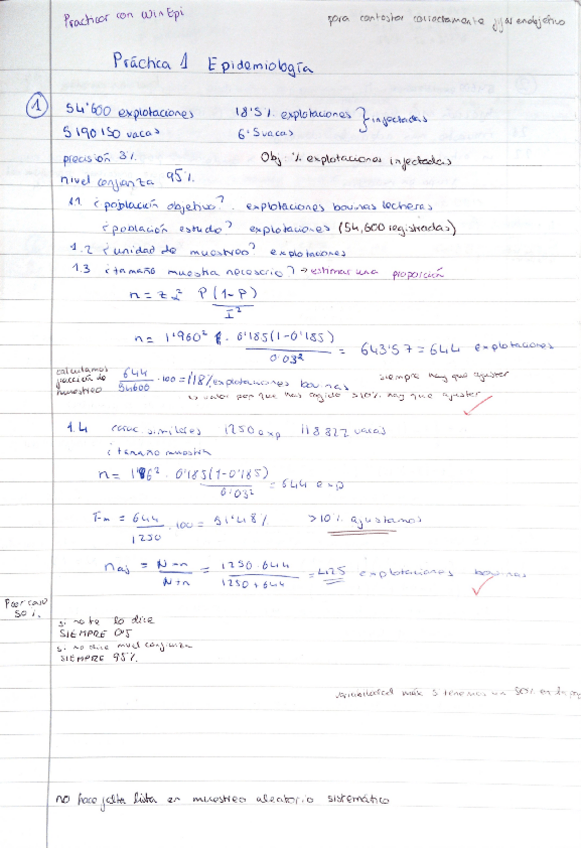 Practicar con WinEpi
para contestar correctamente y ver en objetivo
Práctica 1 Epidemiología
1 54'600 explotaciones 18'5% explotaciones } infectadas
5190150 vacas 6'5 vacas
precisión 3% Obj: % explotaciones infectadas
nivel confianza 95%
1.1 ¿población objetivo? explotaciones bovinas lecheras
¿población estudio? explotaciones (54,600 registradas)
1.2 ¿unidad de muestreo? explotaciones
1.3 ¿tamaño muestra necesario? → estimar una proporción
n = Zα² P(1-P) / I²
n = 1'960² · 0'185(1-0'185) / 0'03² = 643'57 = 644 explotaciones
calculamos fracción de muestreo 644/54600 · 100 = 1'18% explotaciones bovinas
siempre hay que ajustar
valor por que has cogido >10% hay que ajustar
1.4 1250 exp 118822 vacas
¿tamaño muestra
n = 1'96² · 0'185(1-0'185) / 0'03² = 644 exp
F-m = 644/1250 · 100 = 51'48% >10% ajustamos
naj = N·n / N+n = 1250·644 / 1250+644 = 425 explotaciones bovinas
Peor caso 50%
si no te lo dice
SIEMPRE 0'5
si no dice nivel confianza
SIEMPRE 95%
no hace falta lista en muestreo aleatorio sistemático